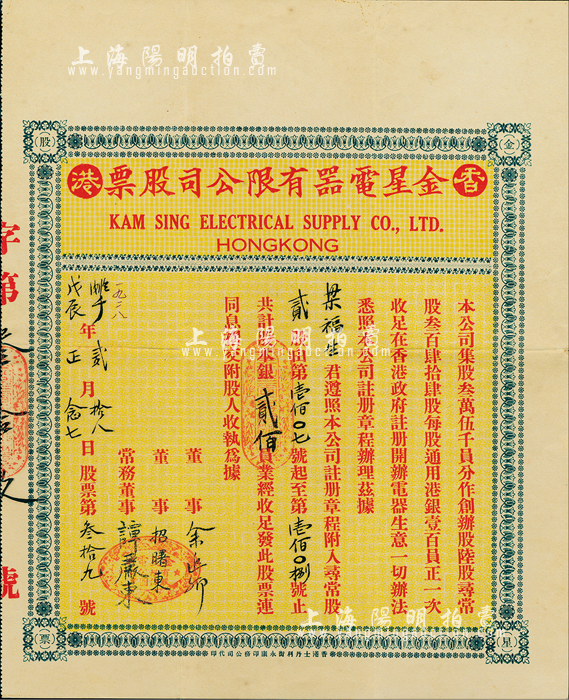 上海陽明拍賣
www.yangmingauction.com
金
股
星
票
香港
金星電器有限公司股票
KAM SING ELECTRICAL SUPPLY CO., LTD.
HONGKONG
本公司集股叁萬伍千員分作創辦股陸股尋常
股叁百肆拾肆股每股通用港銀壹百員正一次
收足在香港政府註册開辦電器生意一切辦法
悉照本公司註册章程辦理茲據
梁福 君遵照本公司註册章程附入尋常股
貳 第壹佰〇七號起至第壹佰〇捌號止
共計 銀貳佰員業經收足發此股票連
同息 交附股人收執爲據
董事 余
董事 招曙東
常務董事 譚 東
一九二八
戊辰 年貳月拾八日
正 念七
股票第叁拾九號
字第 號
上海陽明拍賣
www.yangmingauction.com
上海陽明拍賣
www.yangmingauction.com
香港士丹利街永康印務公司代印